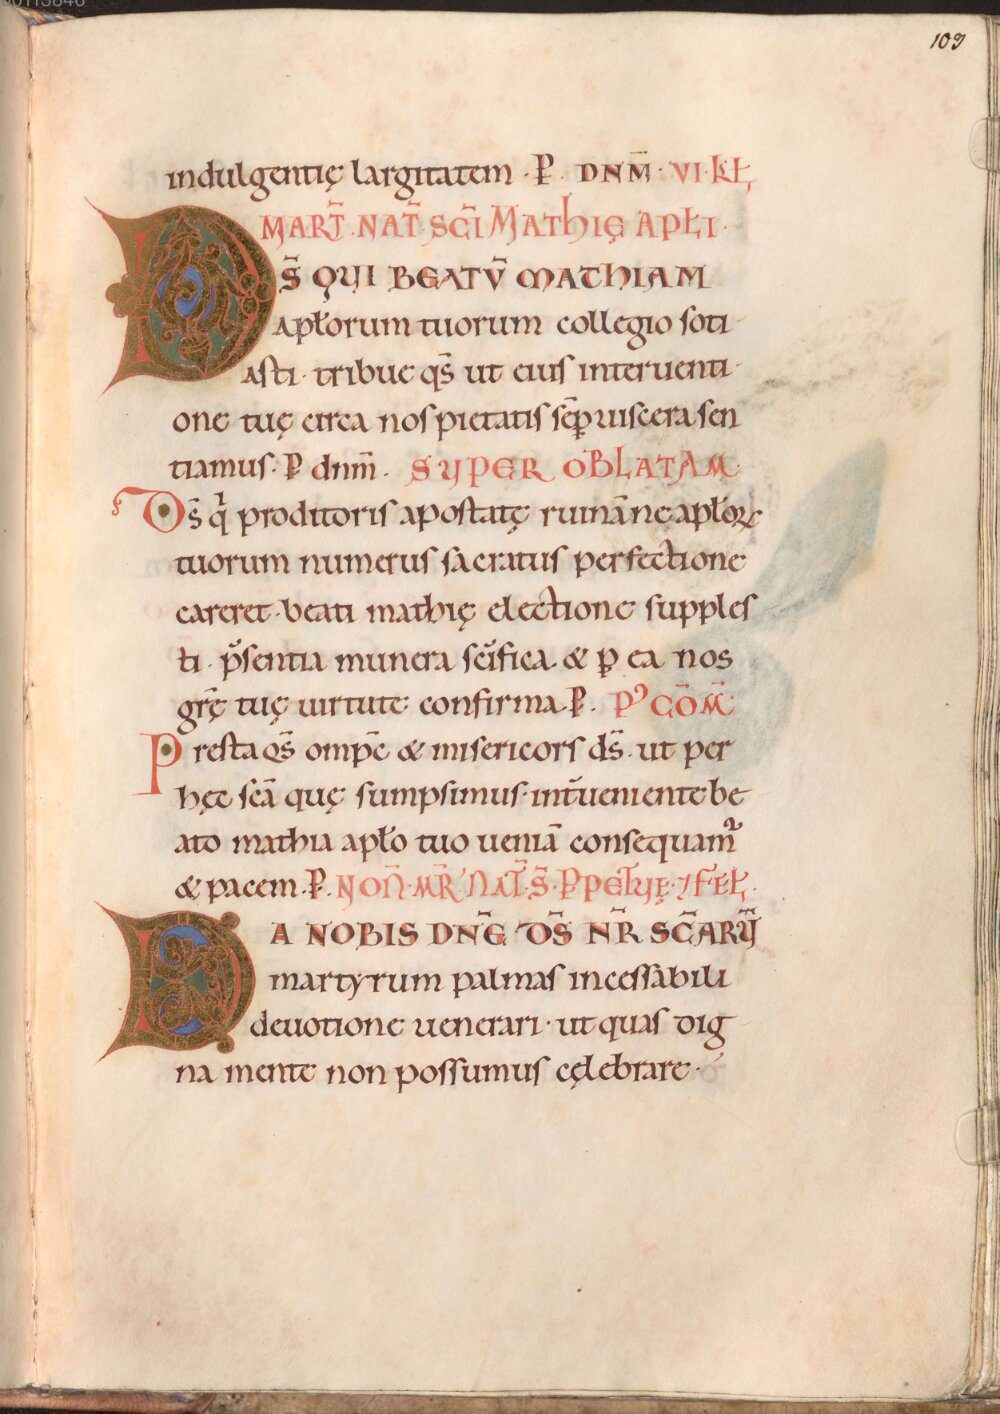 103
indulgentię largitatem · P̄ · DNM̄ · VI · KL̄
MART̄ · NAT̄ · SC̄I MAThIĘ APŁI ·
DS̄ QUI BEATŪ MAThIAM
apłorum tuorum collegio soti
asti · tribue qs̄ ut eius interuenti
one tuę circa nos pietatis sēp uiscera sen
tiamus · P̄ dnm̄ · SUPER OBLATAM
Ds̄ qͥ proditoris apostatę ruinā ne apłoꝝ
tuorum numerus sacratus perfectione
careret · beati mathię electione supples
ti · p̄sentia munera sc̄ifica · & ꝑ ea nos
grę̄ tuę uirtute confirma · P̄ · P᾿ CŌM̄
Presta qs̄ omp̄c & misericors ds̄ · ut per
hęc sc̄ā quę sumpsimus · int̄ueniente be
ato mathia apło tuo ueniā consequam᷑
& pacem · P̄ · NOÑ · MR̄ · NAT̄ · S̄ · PPETUĘ · ⁊ FEŁ ·
DA NOBIS DN̄E DS̄ NR̄ SC̄ARŪ
martyrum palmas incessabili
deuotione uenerari · ut quas dig
na mente non possumus cęlebrare ·